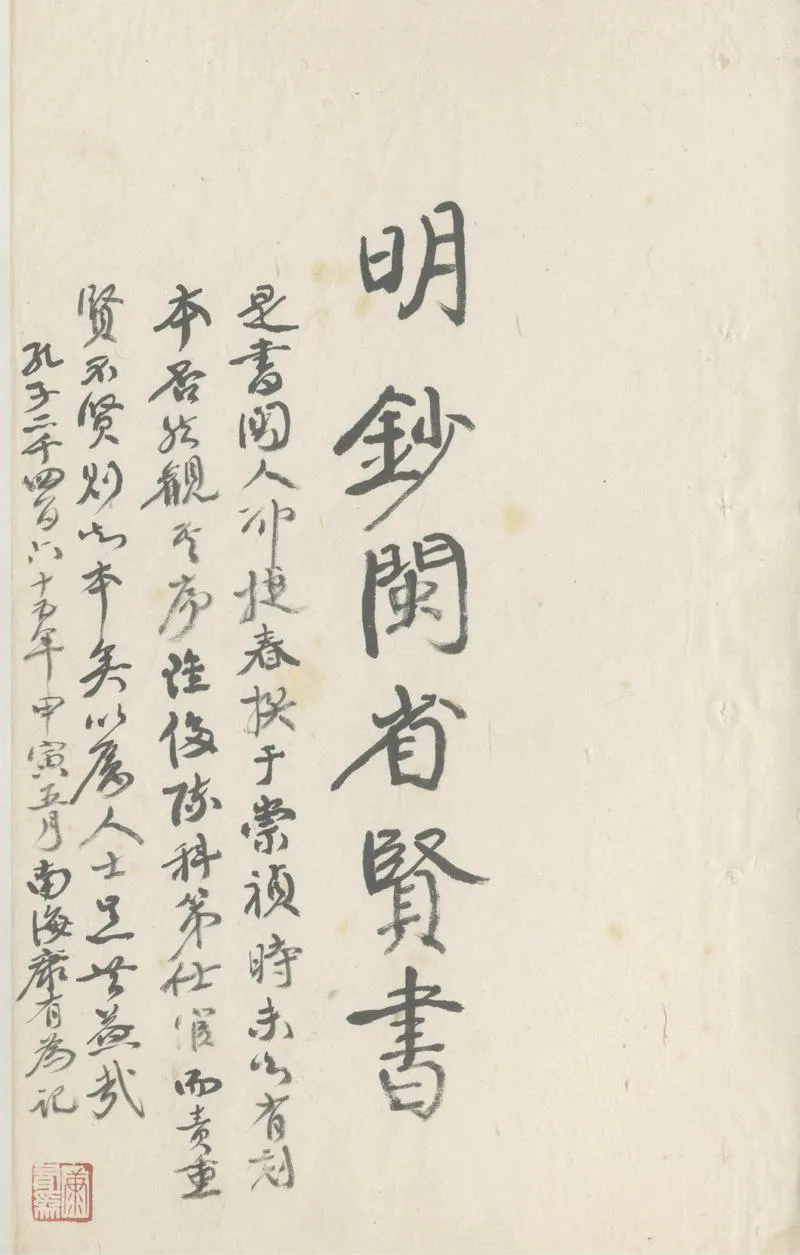 明鈔閩省賢書
是書閩人邵捷春撰于崇禎時未知有刻
本否然觀其序雖侈陳科第仕宦而責重
賢不賢則知本矣以厲人士豈無益哉
孔子二千四百六十五年甲寅五月南海康有為記
康有為